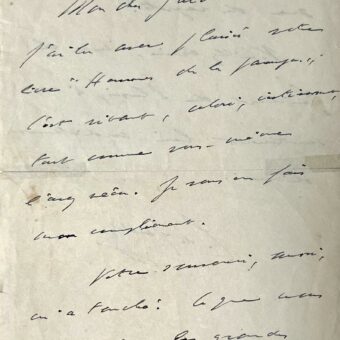 Mon cher
J'ai lu avec plaisir votre
livre "Hommes de la
C'est vivant, coloré,
tout comme vous-même
Je vous en fais
mon compliment.
Votre souvenir, aussi,
m'a touché. Ce que vous
les grands